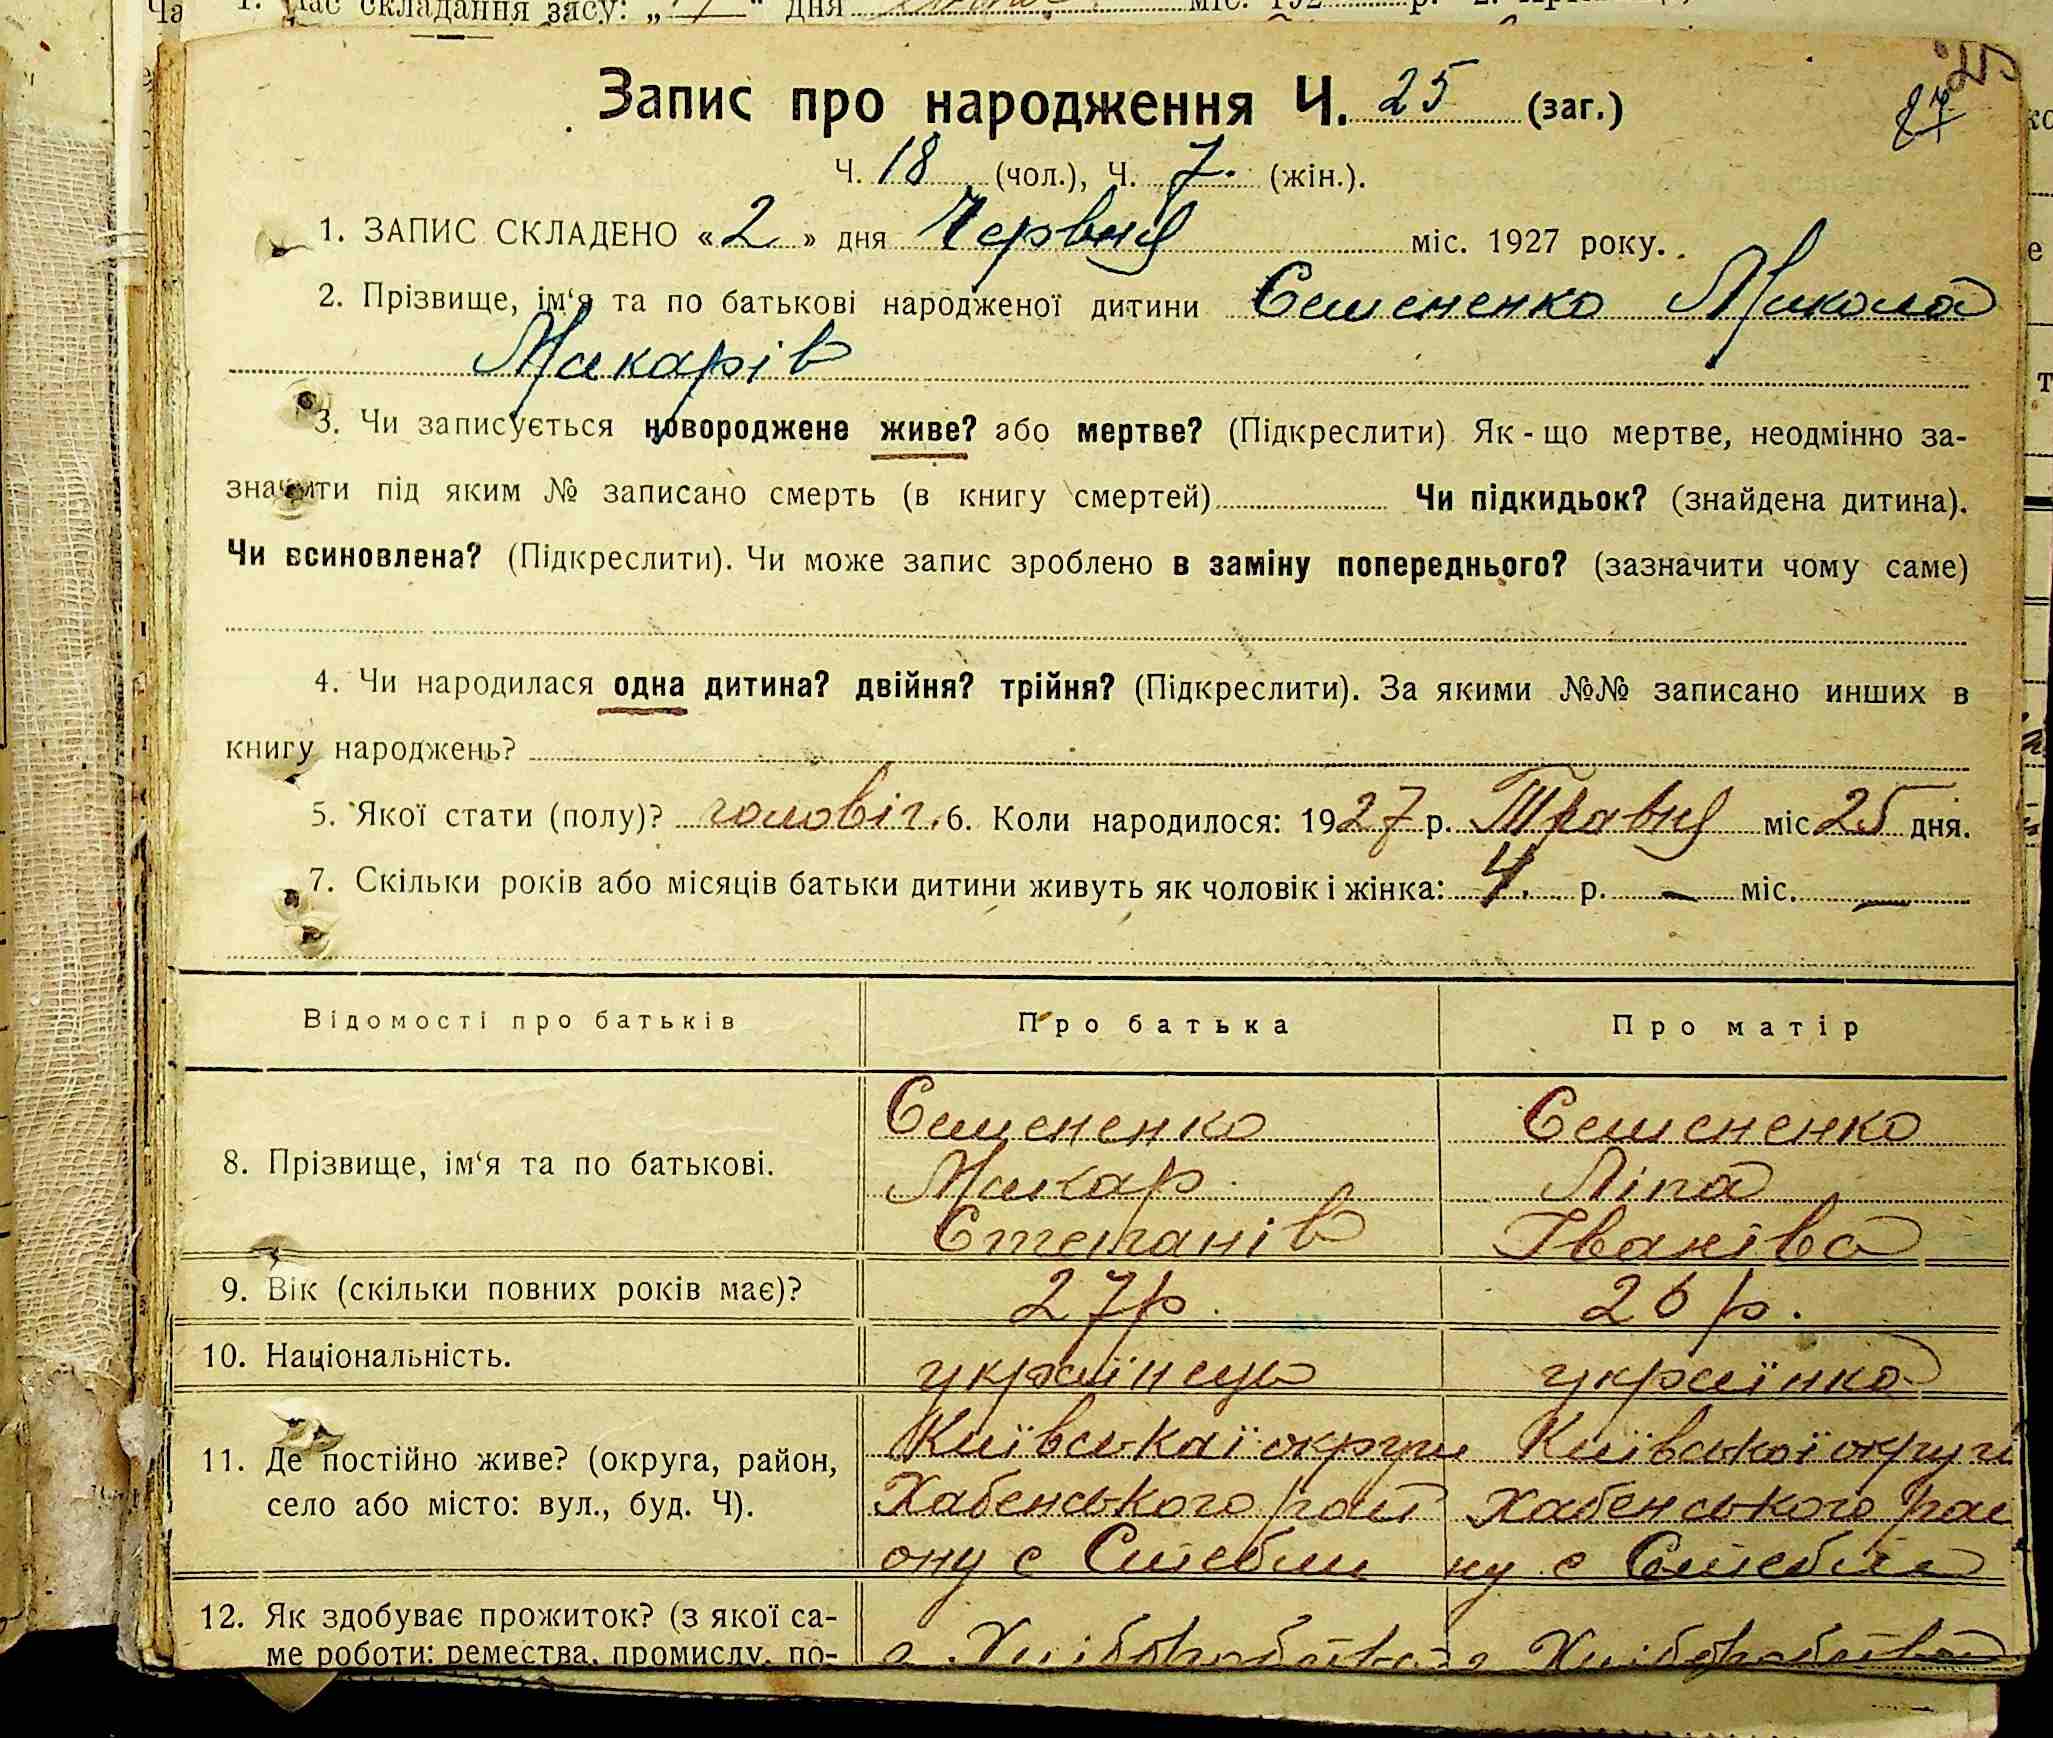 25
87
Запис про народження Ч. 25 (заг.)
Ч. 18 (чол.), Ч. 7. (жін.).
1. ЗАПИС СКЛАДЕНО «2» дня Червня міс. 1927 року.
2. Прізвище, ім‘я та по батькові народженої дитини Семененко Микола
Макарів
3. Чи записується новороджене живе? або мертве? (Підкреслити) Як-що мертве, неодмінно за-
значити під яким № записано смерть (в книгу смертей) Чи підкидьок? (знайдена дитина).
Чи всиновлена? (Підкреслити). Чи може запис зроблено в заміну попереднього? (зазначити чому саме)
4. Чи народилася одна дитина? двійня? трійня? (Підкреслити). За якими №№ записано инших в
книгу народжень?
5. Якої стати (полу)? чоловіч. 6. Коли народилося: 1927 р. Травня міс 25 дня.
7. Скільки років або місяців батьки дитини живуть як чоловік і жінка: 4. р. — міс. —
Відомості про батьків Про батька Про матір
Семененко Семененко
8. Прізвище, ім‘я та по батькові. Макар Ліпа
Степанів Іванівa
9. Вік (скільки повних років має)? 27 р. 26 р.
10. Національність. українець українка
Київської округи Київської округи
11. Де постійно живе? (округа, район, Хабенського рай Хабенського рай
село або місто: вул., буд. Ч). ону с Стебли ну с Стебли
12. Як здобуває прожиток? (з якої са- з Хліборобства з Хліборобства
ме роботи: ремества, промислу, по-